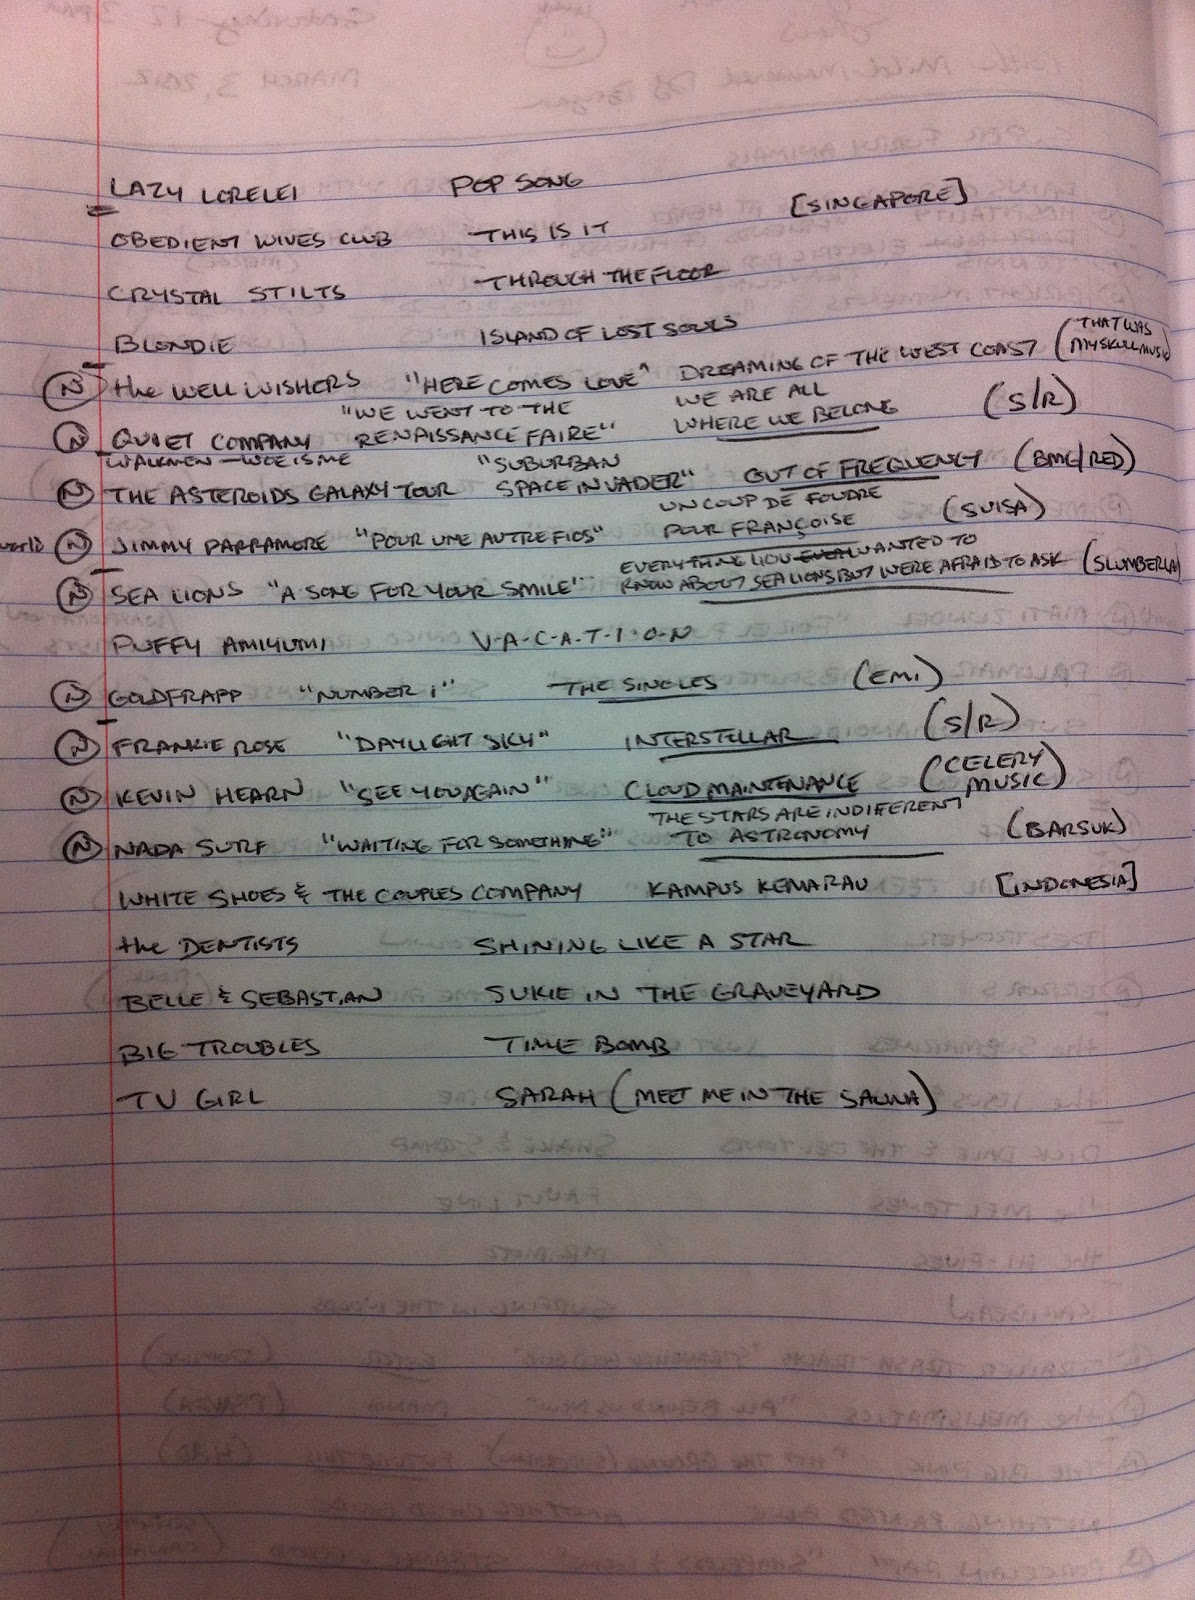 LAZY LORELEI POP SONG
OBEDIENT WIVES CLUB THIS IS IT [SINGAPORE]
CRYSTAL STILTS THROUGH THE FLOOR
BLONDIE ISLAND OF LOST SOULS
(N) the WELL WISHERS "HERE COMES LOVE" DREAMING OF THE WEST COAST (THAT WAS MY SKULL MUSIC)
(N) QUIET COMPANY "WE WENT TO THE RENAISSANCE FAIRE" WE ARE ALL WHERE WE BELONG (S/R)
WALKMEN - WOE IS ME
(N) THE ASTEROIDS GALAXY TOUR "SUBURBAN SPACE INVADER" OUT OF FREQUENCY (BMG/RED)
world (N) JIMMY PARRAMORE "POUR UNE AUTRE FIOS" UN COUP DE FOUDRE POUR FRANÇOISE (SUISA)
(N) SEA LIONS "A SONG FOR YOUR SMILE" EVERYTHING YOU EVER WANTED TO KNOW ABOUT SEA LIONS BUT WERE AFRAID TO ASK (SLUMBERLA)
PUFFY AMIYUMI V-A-C-A-T-I-O-N
(N) GOLDFRAPP "NUMBER 1" THE SINGLES (EMI)
(N) FRANKIE ROSE "DAYLIGHT SKY" INTERSTELLAR (S/R)
(N) KEVIN HEARN "SEE YOU AGAIN" CLOUD MAINTENANCE (CELERY MUSIC)
(N) NADA SURF "WAITING FOR SOMETHING" THE STARS ARE INDIFFERENT TO ASTRONOMY (BARSUK)
WHITE SHOES & THE COUPLES COMPANY KAMPUS KEMARAU [INDONESIA]
the DENTISTS SHINING LIKE A STAR
BELLE & SEBASTIAN SUKIE IN THE GRAVEYARD
BIG TROUBLES TIME BOMB
TV GIRL SARAH (MEET ME IN THE SAUNA)